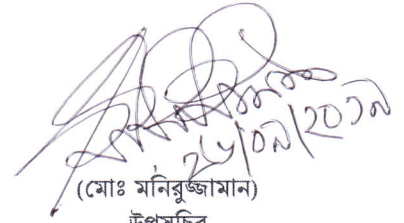 ২৬/০৯/২০১৯
(মোঃ মনিরুজ্জামান)
উপসচিব